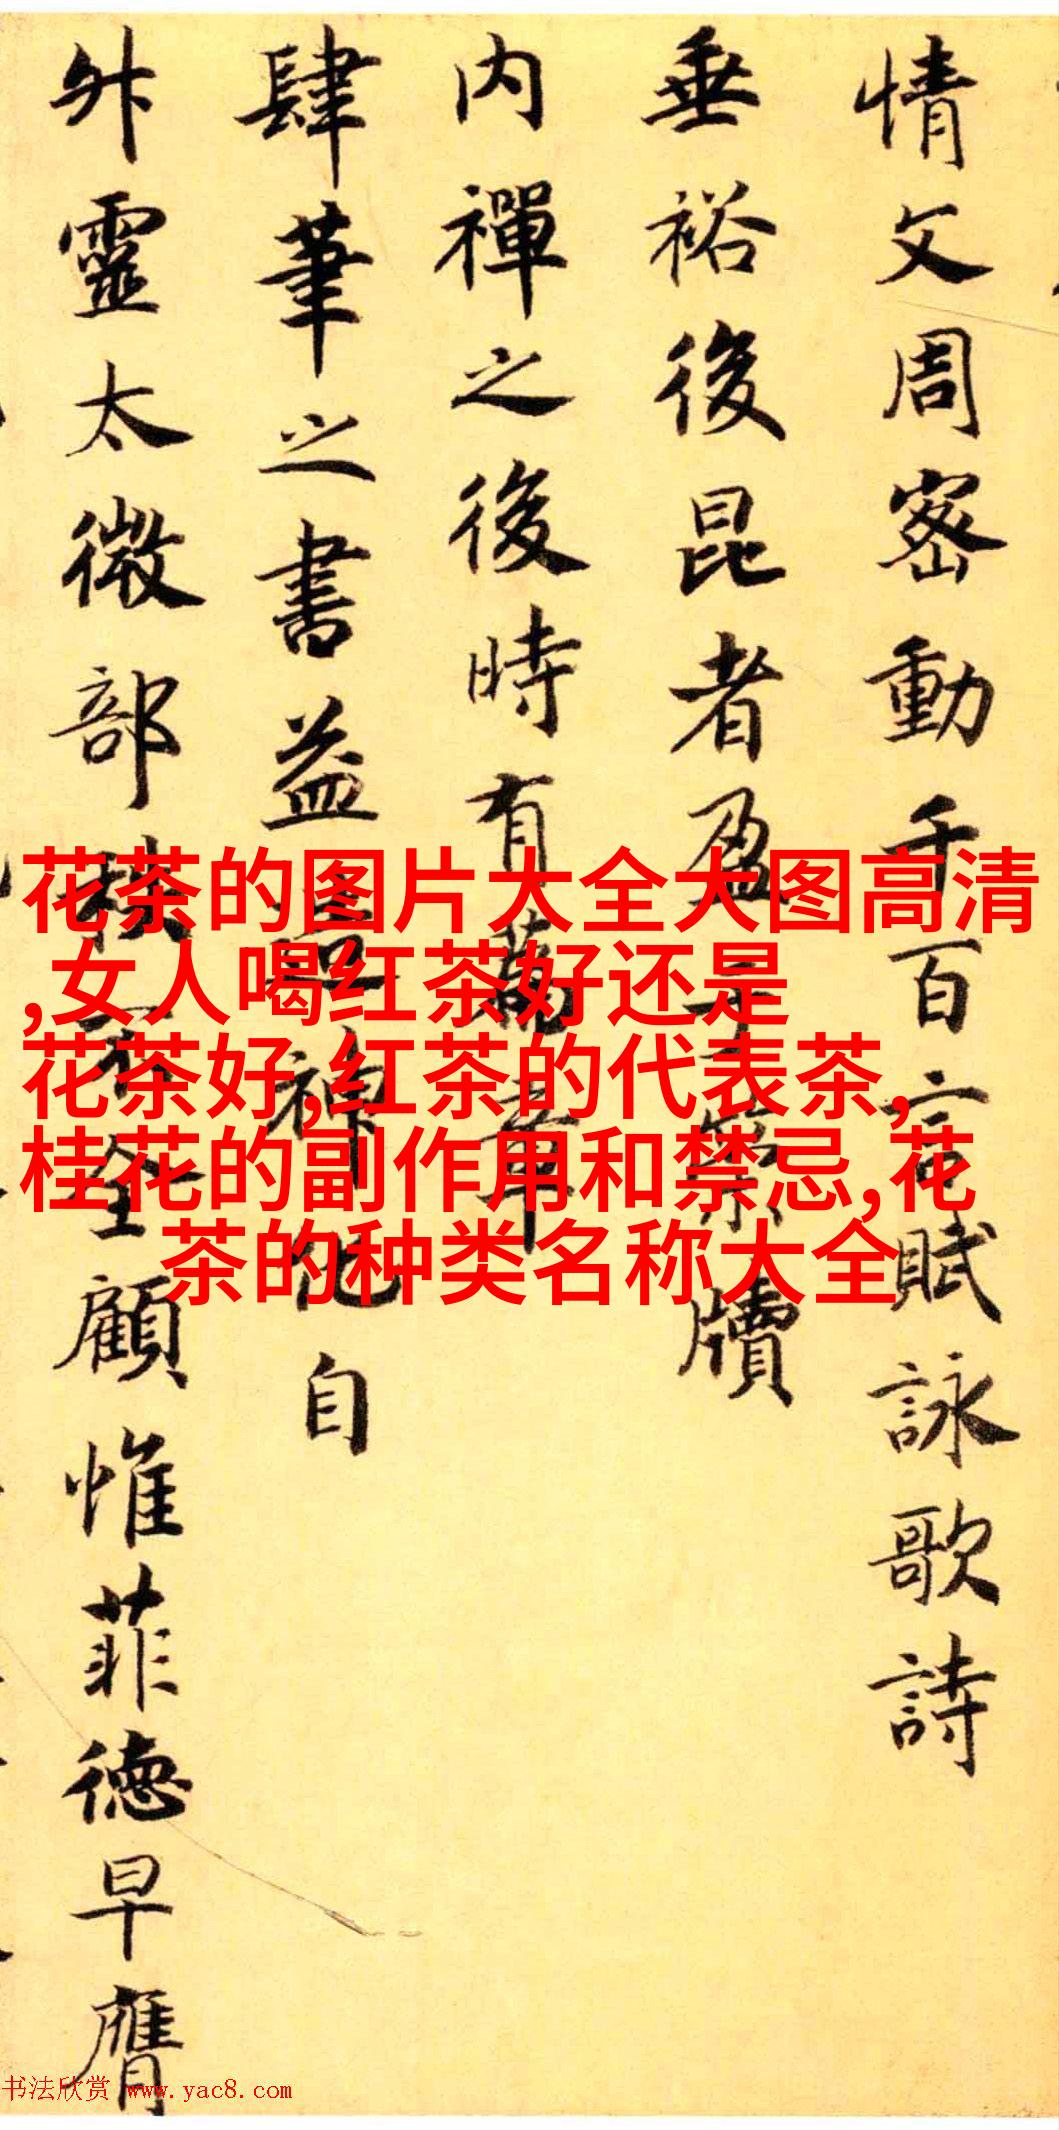 情文周密動千百言賦詠歌詩
垂裕後昆者盈
牘
内禪之後時有萬章
肆筆之書益
神化自
外靈太微部
顧惟菲德早膺
花茶的图片大全大图高清
,女人喝红茶好还是
花茶好,红茶的代表茶,
桂花的副作用和禁忌,花
茶的种类名称大全
书法欣赏 www.yac8.com